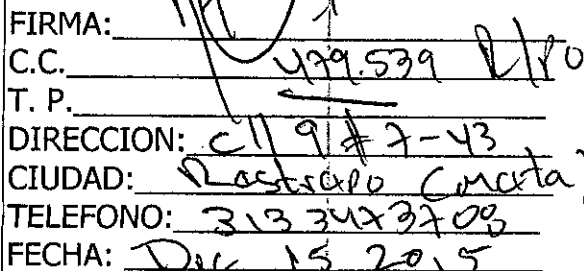 FIRMA:
C.C. 479.539 R/po
T. P.
DIRECCION: Cll 9 # 7-43
CIUDAD: Restrepo (Meta)
TELEFONO: 313 3473708
FECHA: Dic 15 2015